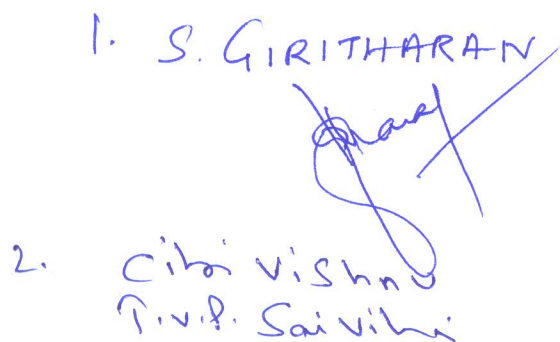 1. S. GIRITHARAN
2. Cibi Vishnu
T.V.S. Sai Vibi